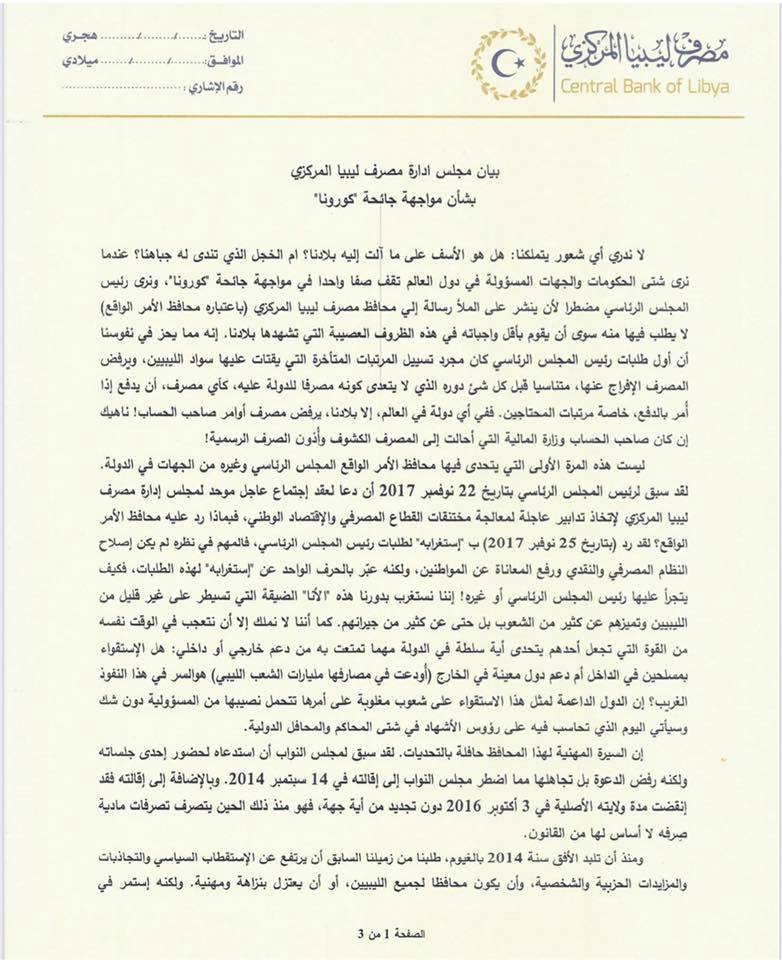 مصرف ليبيا المركزي
Central Bank of Libya
التاريخ : ........./......./......... هجري
الموافق:........./......./......... ميلادي
رقم الإشاري : ..............................
بيان مجلس ادارة مصرف ليبيا المركزي
بشأن مواجهة جائحة "كورونا"
لا ندري أي شعور يتملكنا: هل هو الأسف على ما آلت إليه بلادنا؟ ام الخجل الذي تندى له جباهنا؟ عندما
نرى شتى الحكومات والجهات المسؤولة في دول العالم تقف صفا واحدا في مواجهة جائحة "كورونا"، ونرى رئيس
المجلس الرئاسي مضطرا لأن ينشر على الملأ رسالة إلي محافظ مصرف ليبيا المركزي (باعتباره محافظ الأمر الواقع)
لا يطلب فيها منه سوى أن يقوم بأقل واجباته في هذه الظروف العصيبة التي تشهدها بلادنا. إنه مما يحز في نفوسنا
أن أول طلبات رئيس المجلس الرئاسي كان مجرد تسييل المرتبات المتأخرة التي يقتات عليها سواد الليبيين، ويرفض
المصرف الإفراج عنها، متناسيا قبل كل شئ دوره الذي لا يتعدى كونه مصرفا للدولة عليه، كأي مصرف، أن يدفع إذا
أُمر بالدفع، خاصة مرتبات المحتاجين. ففي أي دولة في العالم، إلا بلادنا، يرفض مصرف أوامر صاحب الحساب! ناهيك
إن كان صاحب الحساب وزارة المالية التي أحالت إلى المصرف الكشوف وأُذون الصرف الرسمية!
ليست هذه المرة الأولى التي يتحدى فيها محافظ الأمر الواقع المجلس الرئاسي وغيره من الجهات في الدولة.
لقد سبق لرئيس المجلس الرئاسي بتاريخ 22 نوفمبر 2017 أن دعا لعقد إجتماع عاجل موحد لمجلس إدارة مصرف
ليبيا المركزي لإتخاذ تدابير عاجلة لمعالجة مختنقات القطاع المصرفي والإقتصاد الوطني، فبماذا رد عليه محافظ الأمر
الواقع؟ لقد رد (بتاريخ 25 نوفبر 2017) ب "إستغرابه" لطلبات رئيس المجلس الرئاسي، فالمهم في نظره لم يكن إصلاح
النظام المصرفي والنقدي ورفع المعاناة عن المواطنين، ولكنه عبّر بالحرف الواحد عن "إستغرابه" لهذه الطلبات، فكيف
يتجرأ عليها رئيس المجلس الرئاسي أو غيره! إننا نستغرب بدورنا هذه "الأنا" الضيقة التي تسيطر على غير قليل من
الليبيين وتميزهم عن كثير من الشعوب بل حتى عن كثير من جيرانهم. كما أننا لا نملك إلا أن نتعجب في الوقت نفسه
من القوة التي تجعل أحدهم يتحدى أية سلطة في الدولة مهما تمتعت به من دعم خارجي أو داخلي: هل الإستقواء
بمسلحين في الداخل أم دعم دول معينة في الخارج (أُودعت في مصارفها مليارات الشعب الليبي) هوالسر في هذا النفوذ
الغريب؟ إن الدول الداعمة لمثل هذا الاستقواء على شعوب مغلوبة على أمرها تتحمل نصيبها من المسؤولية دون شك
وسيأتي اليوم الذي تحاسب فيه على رؤوس الأشهاد في شتى المحاكم والمحافل الدولية.
إن السيرة المهنية لهذا المحافظ حافلة بالتحديات. لقد سبق لمجلس النواب أن استدعاه لحضور إحدى جلساته
ولكنه رفض الدعوة بل تجاهلها مما اضطر مجلس النواب إلى إقالته في 14 سبتمبر 2014. وبالإضافة إلى إقالته فقد
إنقضت مدة ولايته الأصلية في 3 أكتوبر 2016 دون تجديد من أية جهة، فهو منذ ذلك الحين يتصرف تصرفات مادية
صِرفه لا أساس لها من القانون.
ومنذ أن تلبد الأفق سنة 2014 بالغيوم، طلبنا من زميلنا السابق أن يرتفع عن الإستقطاب السياسي والتجاذبات
والمزايدات الحزبية والشخصية، وأن يكون محافظا لجميع الليبيين، أو أن يعتزل بنزاهة ومهنية. ولكنه إستمر في
الصفحة 1 من 3